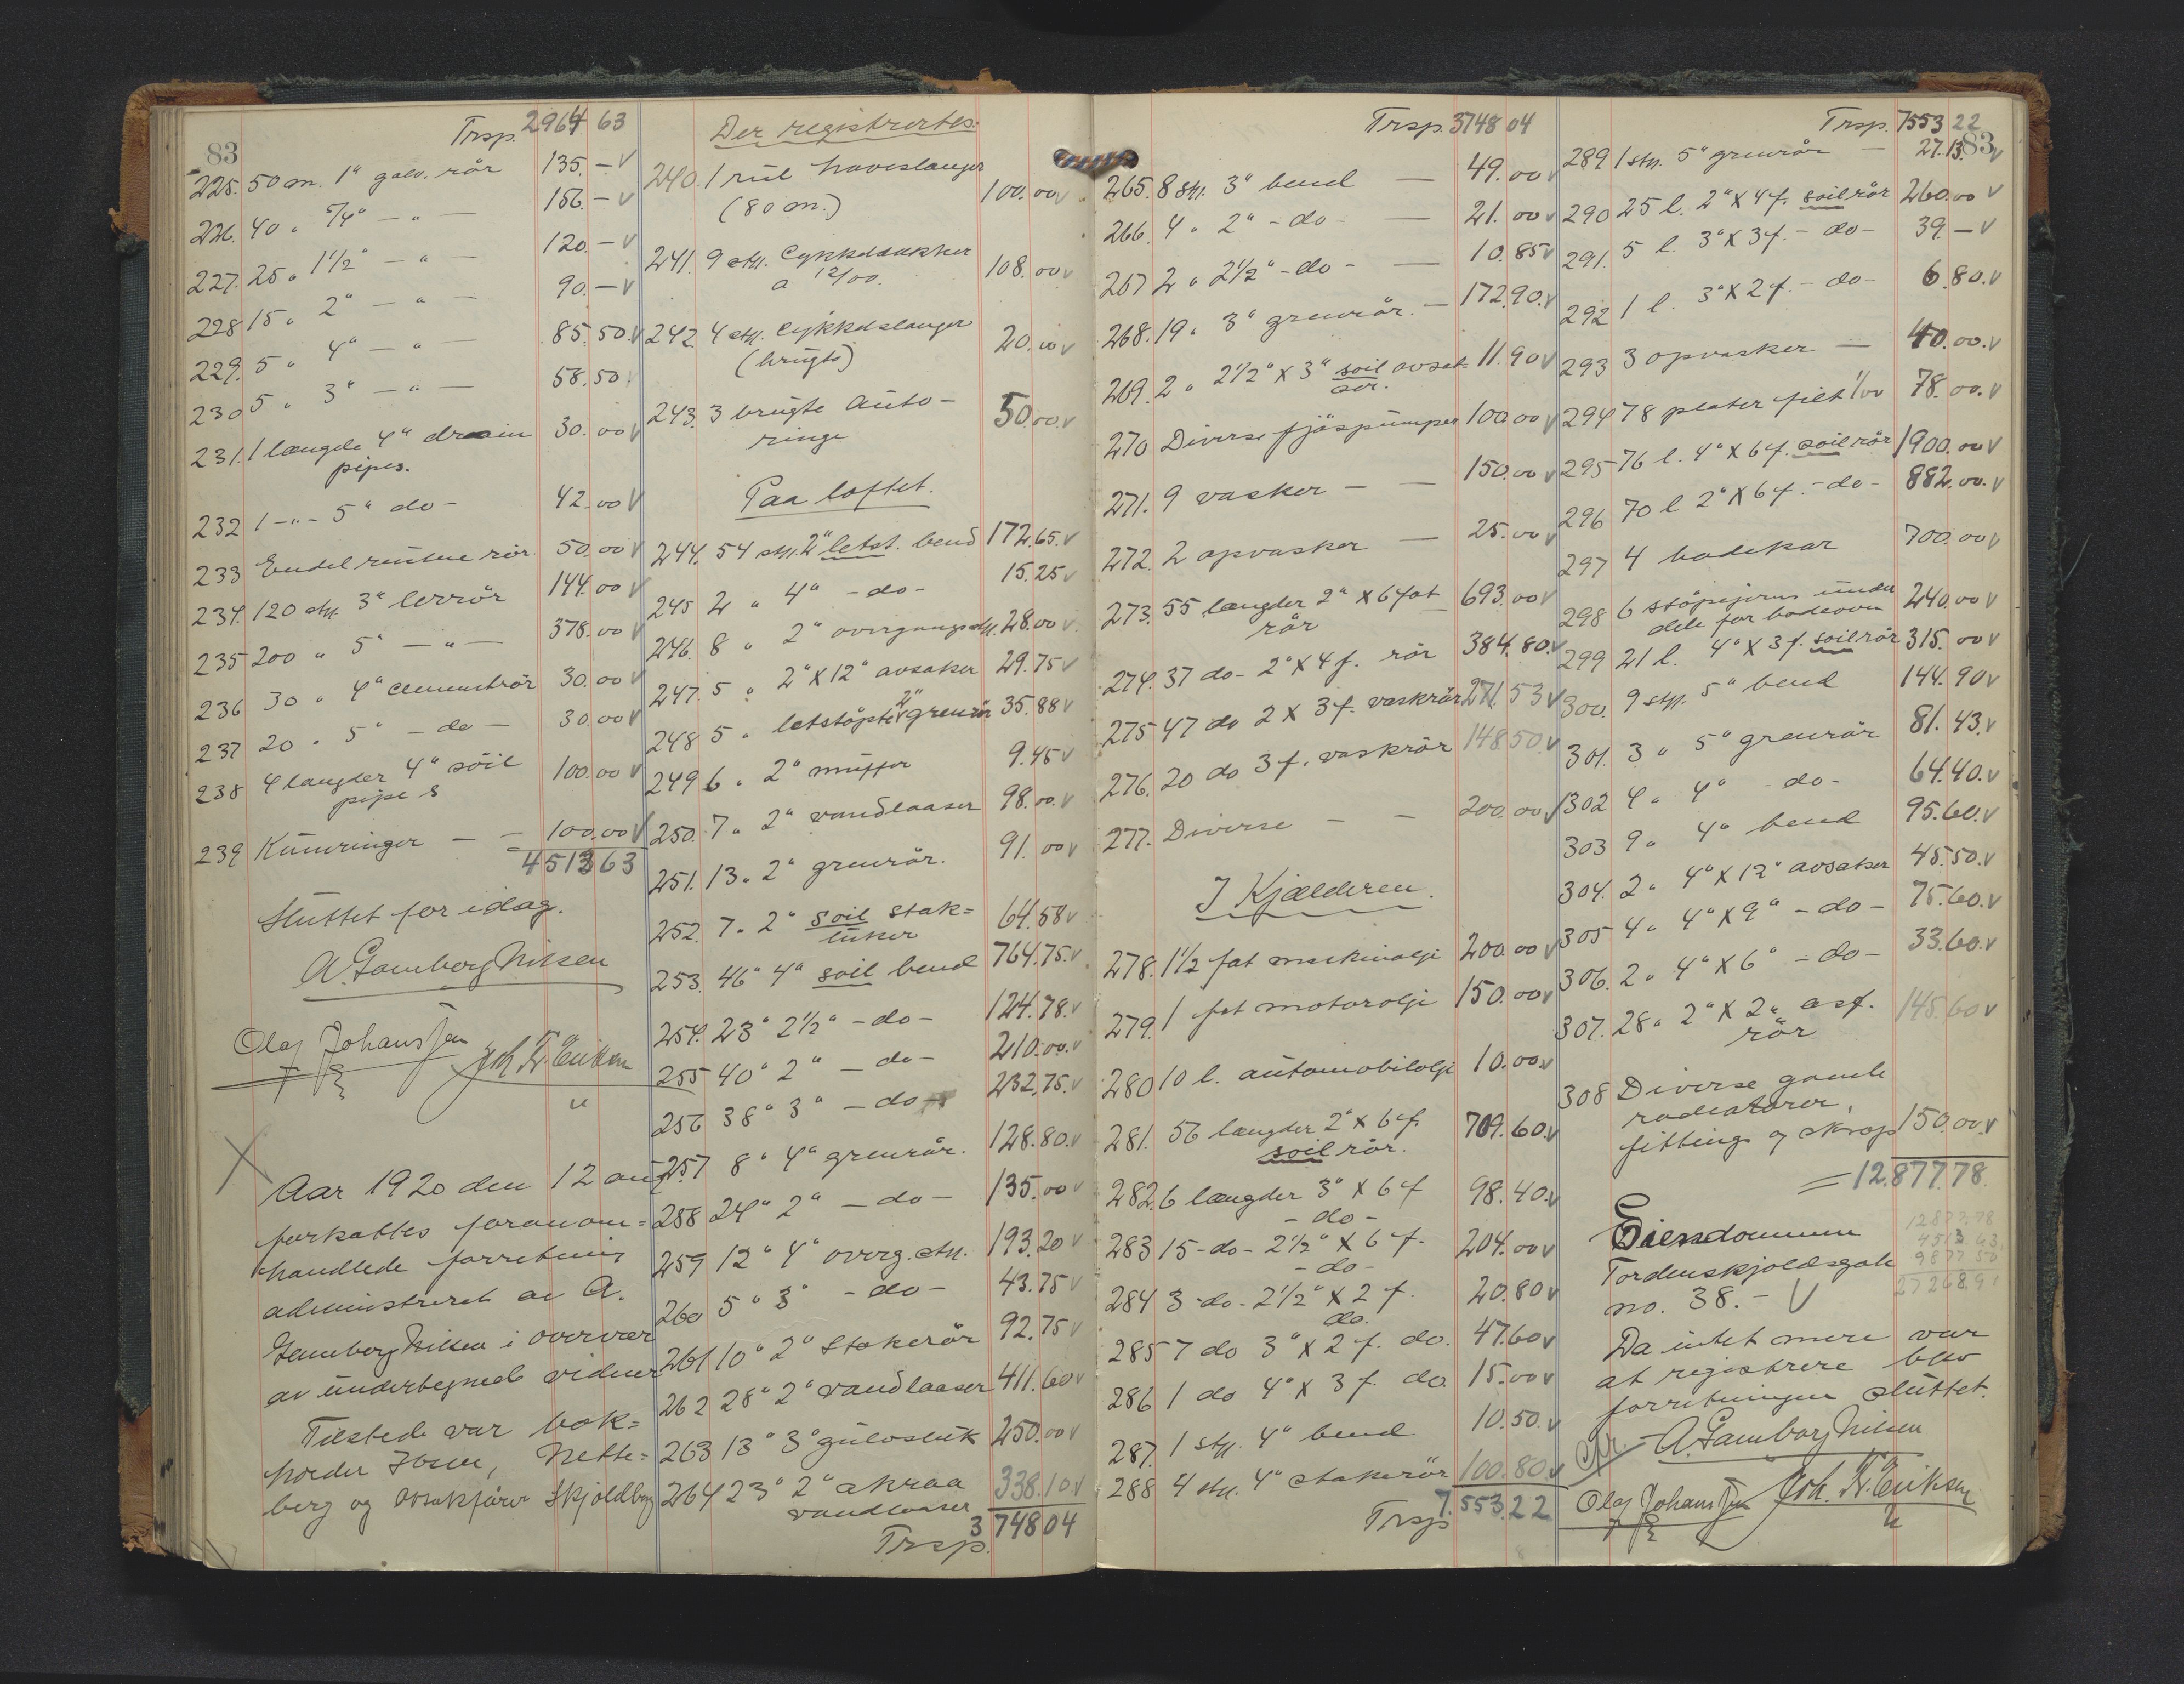 83
Trsp. 2964 63
225. 50 m. 1" galv. rör 135.-
226. 40 " 5/4" - " - 156.-
227. 25 " 1 1/2" - " - 120.-
228 15 " 2" - " - 90.-
229. 5 " 4" - " - 85.50.
230 5 " 3" - " - 58.50
231. 1 længde 4" drain 30.00
pipes.
232 1 -"- 5" do - 42.00
233 Endel rustne rör. 50.00
234. 120 stk. 3" lerrör 144.00
235 200 " 5" - " - 378.00
236 30 " 4" cementrör 30.00
237 20 " 5" - do - 30.00
238 4 længder 4" söil 100.00
pipes
239 Kumringer - - 100.00
4513 63
Sluttet for idag.
A. Gamborg Nilsen
Olaf Johansen Joh. Fr. Eriksen
Aar 1920 den 12 aug.
forsattes foranom=
handlede forretning
administreret av A.
Gamborg Nilsen i overvær
av undertegnede vidner
Tilstede var bok=
holder Ibsen, Nette=
berg og Orsakförer Skjoldborg
Der registrertes:
240. 1 rul haveslanger
(80 m.) 100.00
241. 9 stk. Cykkeldækker
a 12/00. 108.00
242. 4 stk. Cykkelslanger
(brugte) 20.00
243. 3 brugte auto- 50.00
ringe
Paa loftet.
244. 54 stk. 2" letst. bend 172.65.
245 2 " 4" - do - 15.25
246. 8 " 2" overgangsstk. 28.00
247. 5 " 2" X 12" avsatser 29.75
248 5 " letstöpte 2" grenrör 35.88
249 6 " 2" muffer 9.45
250. 7 " 2" vandlaaser 98.00.
251. 13 " 2" grenrör. 91.00
252. 7 " 2" soil stak= 64.58
luker
253. 46 " 4" soil bend 764.75.
254. 23 " 2 1/2" - do - 124.78.
255 40 " 2" - do - 210.00.
256 38 " 3" - do - 232.75.
257 8 " 4" grenrör. 128.80.
258 24 " 2" - do - 135.00
259 12 " 4" overg. stk. 193.20
260 5 " 3" - do - 43.75
261 10 " 2" Stakerör 92.75
262 28 " 2" vandlaaser 411.60
263 13 " 3" gulvsluk 250.00
264 23 " 2" skraa 338.10
vandlaaser
Trsp. 3 748 04
Trsp. 3748 04
265. 8 stk. 3" bend - 49.00
266. 4 " 2" - do - - 21.00
267 2 " 2 1/2" - do - - 10.85
268. 19 " 3" grenrör. - 172.90.
269. 2 " 2 1/2" X 3" soil avsat- 11.90
ser.
270 Diverse fjöspumper 100.00
271. 9 vasker - - 150.00
272. 2 opvasker - 25.00
273. 55 længder 2" X 6 fot 693.00
rör
274. 37 do - 2" X 4 f. rör 384.80.
275 47 do 2 X 3 f. vaskrör 271.53
276. 20 do 3 f. vaskrör 148 50.
277. Diverse - - 200.00
I Kjælderen.
278. 1 1/2 fat maskinolje 200.00
279. 1 fat motorolje 150.00
280 10 l. automobilolje 10.00
281. 56 længder 2" X 6 f. 709.60.
soil rör.
282. 6 længder 3" X 6 f 98.40.
- do -
283 15 - do - 2 1/2" X 6 f. 204.00
- do -
284 3 - do - 2 1/2" X 2 f. 20.80
do.
285 7 do 3" X 2 f. do. 47.60
286 1 do 4" X 3 f. do. 15.00
287. 1 stk. 4" bend 10.50.
288 4 stk. 4" stakerör 100.80.
Trsp 7.553.22
Trsp. 7553 22
83
289 1 stk. 5" grenrör - 27.13.
290 25 l. 2" X 4 f. soil rör 260.00
291. 5 l. 3" X 3 f. - do - 39.-
292 1 l. 3" X 2 f. - do - 6.80.
293 3 opvasker - 40.00.
294 78 plater filt 1/00 78.00.
295 76 l. 4" X 6 f. soil rör 1900.00
296 70 l 2" X 6 f. - do - 882.00.
297 4 badekar 700.00
298 6 stöpejerns under 240.00
dele for badeovn
299 21 l. 4" X 3 f. soil rör 315.00
300. 9 stk. 5" bend 144.90
301. 3 " 5" grenrör 81.43.
302 4 " 4" - do - 64.40.
303 9 " 4" bend 95.60.
304. 2 " 4" X 12" avsatser 45.50.
305 4 " 4" X 9" - do - 75.60.
306. 2 " 4" X 6" - do - 33.60.
307. 28 " 2" X 2" asf. 145.60
rör
308 Diverse gamle
radiatorer,
fittings og skrap 150.00.
= 12.877.78.
Eiendommen
Tordenskjoldsgate
no. 38.-
12877.78
4513 63
9877 50
27268.91
Da intet mere var
at registrere blev
forretningen sluttet.
A. Gamborg Nilsen
Olaf Johansen Joh. Fr. Eriksen